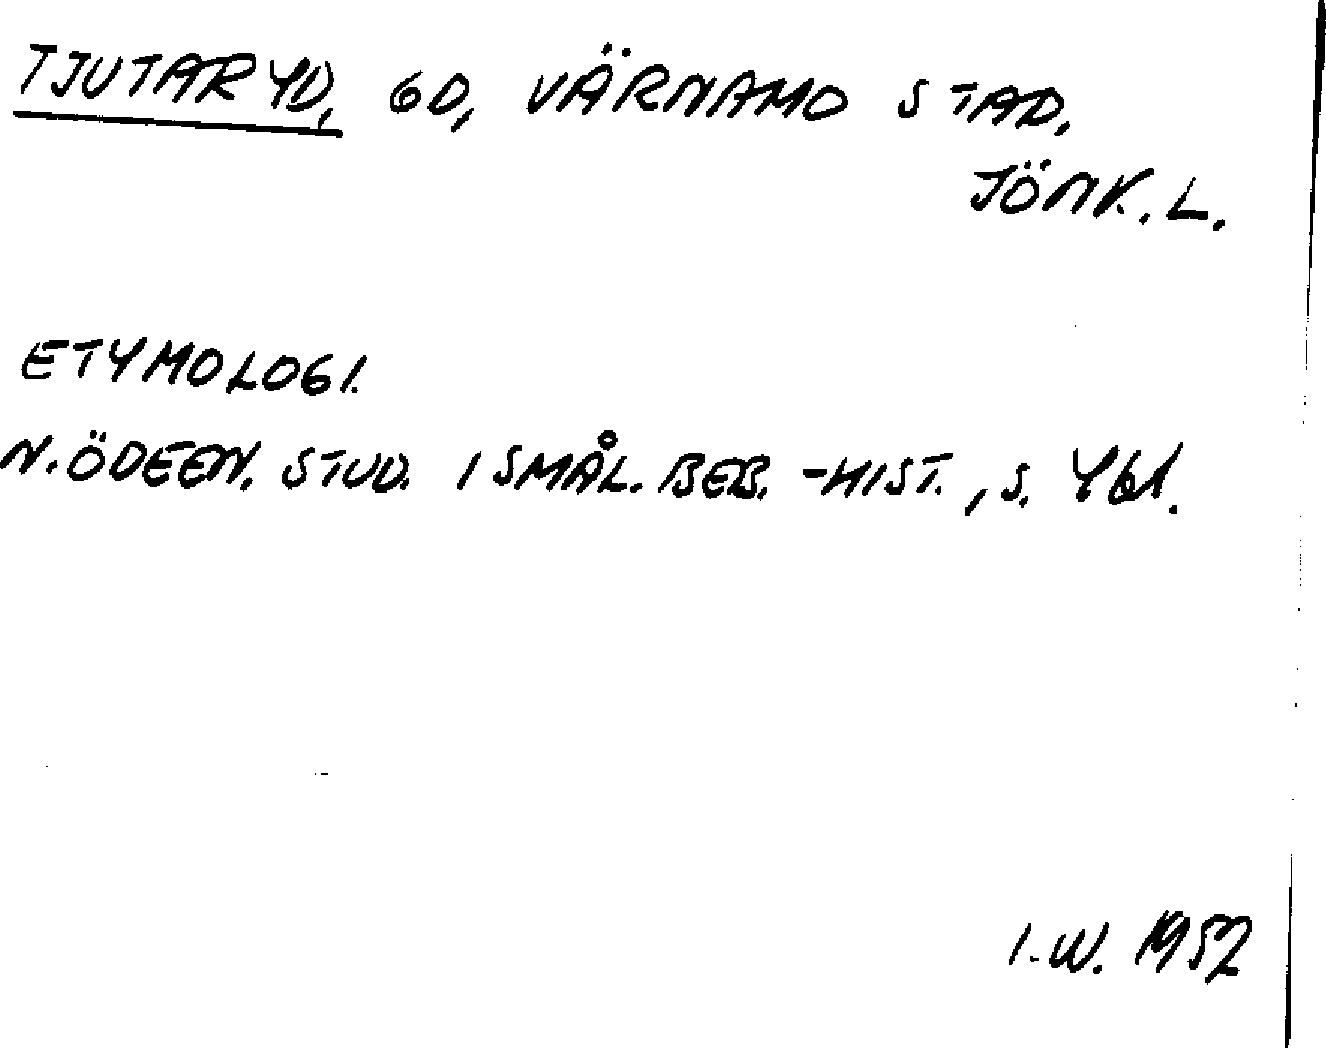 TJUTARYD, GD, VÄRNAMO STAD,
JÖNK. L.
ETYMOLOGI.
N. ÖDEEN. STUD. I SMÅL. BEB. -HIST., S. 461.
I.W. 1952